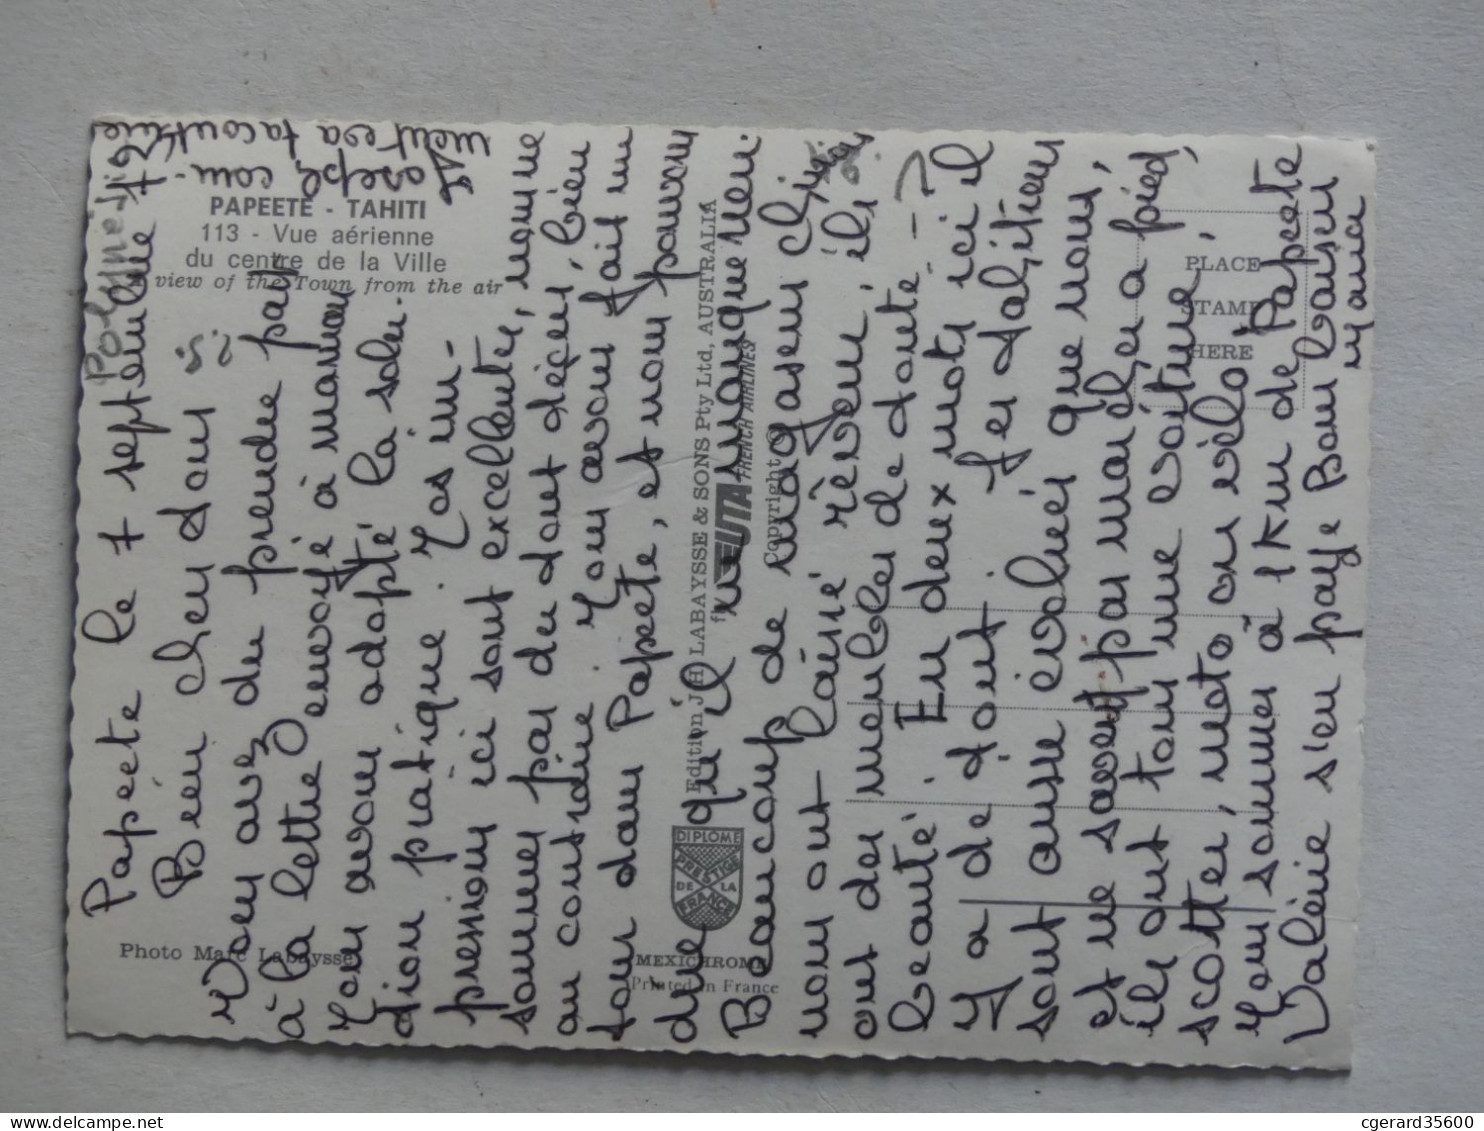 Papeete le 7 septembre 76
Polynésie
Bien chers tous
Vous avez du prendre part
à la lettre envoyé à maman
Nous avons adopté la solu-
tion pratique. Nos im-
pressions ici sont excellentes, nous ne
sommes pas du tout déçus, bien
au contraire. Nous avons fait un
tour dans Papeete, et nous pouvons
dire qu'il ne manque rien.
Beaucoup de magasins chinois
nous ont laissé rêveurs, ils
ont des meubles de toute
beauté. En deux mots ici il
y a de tout. Les habitants
sont aussi évolués que nous,
et ne savent pas marcher à pied,
ils ont tous une voiture,
scotter, moto ou vélo.
Nous sommes à 1 km de Papeete
Valérie s'en paye Bons baisers
Joseph com-
ment va ta
PAPEETE - TAHITI
113 - Vue aérienne
du centre de la Ville
A view of the Town from the air
Photo Marc Labaysse
Edition J.H. LABAYSSE & SONS Pty Ltd, AUSTRALIA
fly UTA FRENCH AIRLINES
Copyright ©
DIPLOME
PRESTIGE
DE LA
FRANCE
MEXICHROME
Printed in France
PLACE
STAMP
HERE
cgerard35600